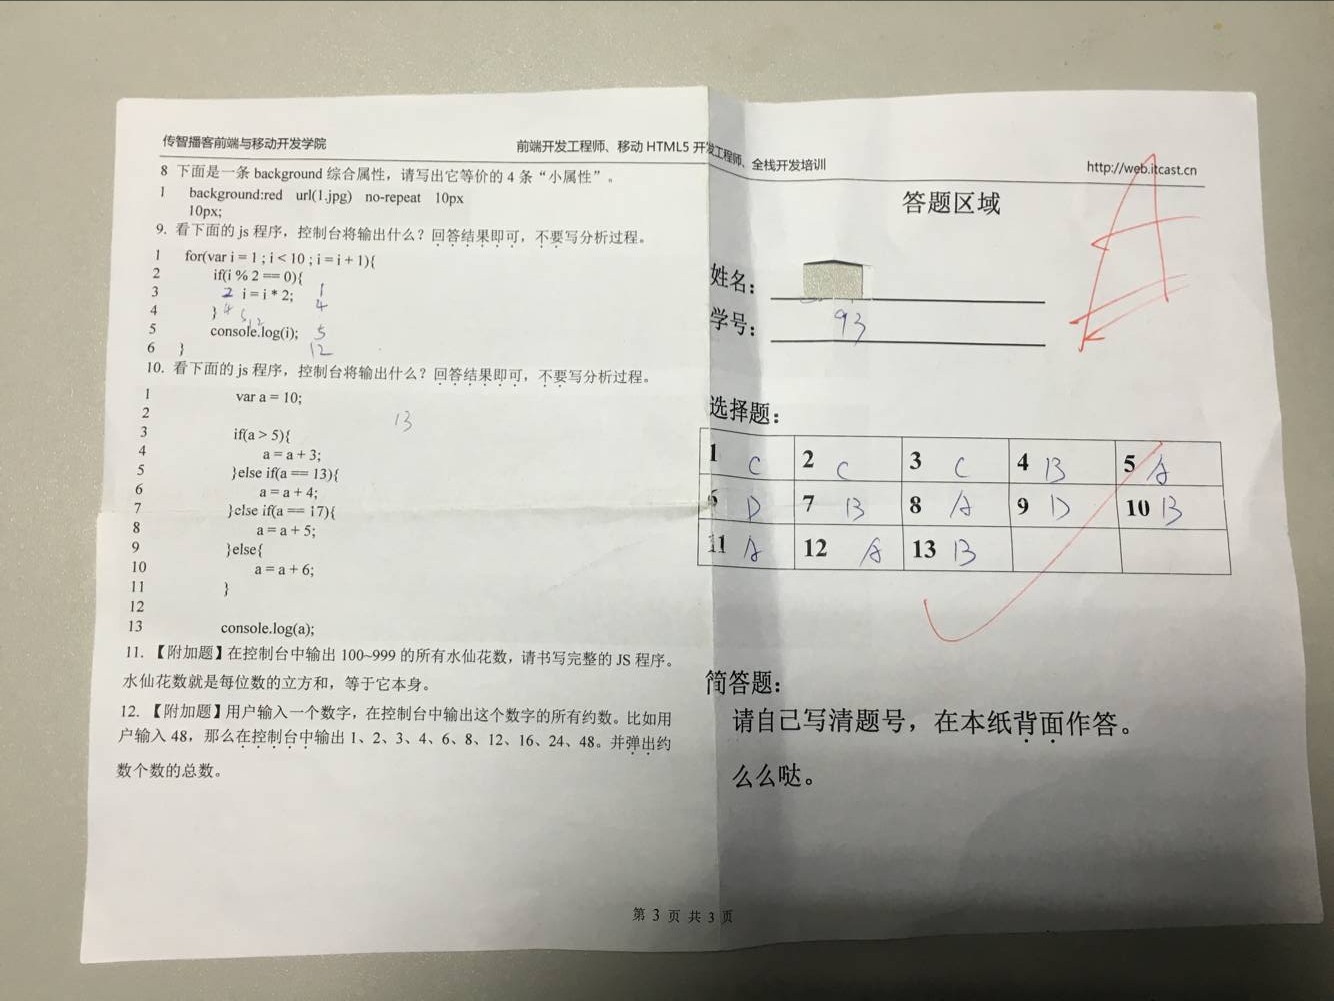 传智播客前端与移动开发学院 前端开发工程师、移动 HTML5 开发工程师、全栈开发培训 http://web.itcast.cn
8 下面是一条 background 综合属性，请写出它等价的 4 条“小属性”。
1 background:red url(1.jpg) no-repeat 10px
10px;
9. 看下面的 js 程序，控制台将输出什么？回答结果即可，不要写分析过程。
1 for(var i = 1 ; i < 10 ; i = i + 1){
2 if(i % 2 == 0){
3 2 i = i * 2; 1
4 } 4 5 12 4
5 console.log(i); 5
6 } 12
10. 看下面的 js 程序，控制台将输出什么？回答结果即可，不要写分析过程。
1 var a = 10;
2 13
3 if(a > 5){
4 a = a + 3;
5 }else if(a == 13){
6 a = a + 4;
7 }else if(a == 17){
8 a = a + 5;
9 }else{
10 a = a + 6;
11 }
12
13 console.log(a);
11. 【附加题】在控制台中输出 100~999 的所有水仙花数，请书写完整的 JS 程序。
水仙花数就是每位数的立方和，等于它本身。
12. 【附加题】用户输入一个数字，在控制台中输出这个数字的所有约数。比如用
户输入 48，那么在控制台中输出 1、2、3、4、6、8、12、16、24、48。并弹出约
数个数的总数。
答题区域
A
姓名：
学号： 93
选择题：
1 C 2 C 3 C 4 B 5 A
6 D 7 B 8 A 9 D 10 B
11 A 12 A 13 B
简答题：
请自己写清题号，在本纸背面作答。
么么哒。
第 3 页 共 3 页